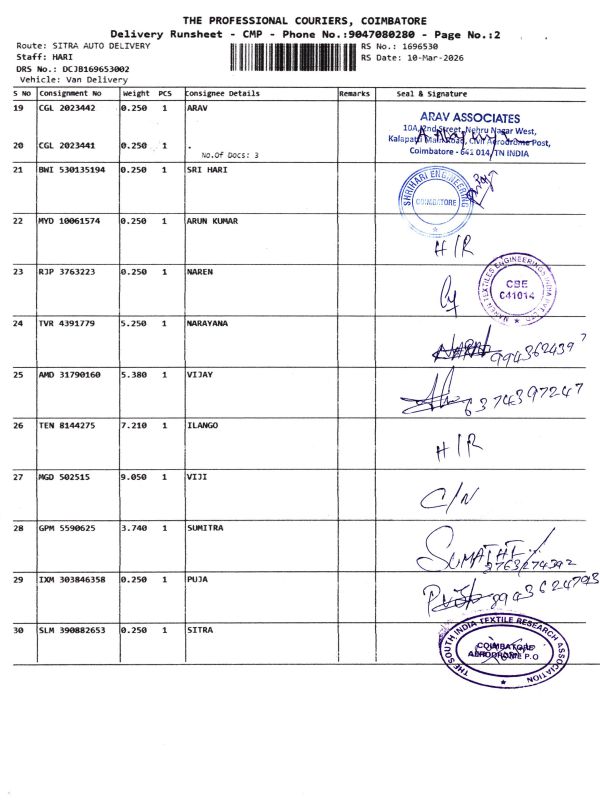 THE PROFESSIONAL COURIERS, COIMBATORE
Delivery Runsheet - CMP - Phone No.:9047080280 - Page No.:2
Route: SITRA AUTO DELIVERY RS No.: 1696530
Staff: HARI RS Date: 10-Mar-2026
DRS No.: DCJB169653002
Vehicle: Van Delivery
S No Consignment No Weight PCS Consignee Details Remarks Seal & Signature
19 CGL 2023442 0.250 1 ARAV
ARAV ASSOCIATES
10A, 2nd Street, Nehru Nagar West,
Kalapatti Main Road, Civil Aerodrome Post,
Coimbatore - 641 014, TN INDIA
20 CGL 2023441 0.250 1 .
No.Of Docs: 3
21 BWI 530135194 0.250 1 SRI HARI
SHRIHARI ENGINEERING
COIMBATORE
22 MYD 10061574 0.250 1 ARUN KUMAR
H/R
23 RJP 3763223 0.250 1 NAREN
NAREN TEXTILES ENGINEERINGS INDIA PVT. LTD.
CBE
641014
24 TVR 4391779 5.250 1 NARAYANA
9943624397
25 AMD 31790160 5.380 1 VIJAY
6374397247
26 TEN 8144275 7.210 1 ILANGO
H/R
27 MGD 502515 9.050 1 VIJI
C/N
28 GPM 5590625 3.740 1 SUMITRA
SUMATHI
29 IXM 303846358 0.250 1 PUJA
30 SLM 390882653 0.250 1 SITRA
THE SOUTH INDIA TEXTILE RESEARCH ASSOCIATION
COIMBATORE
AERODROME P.O